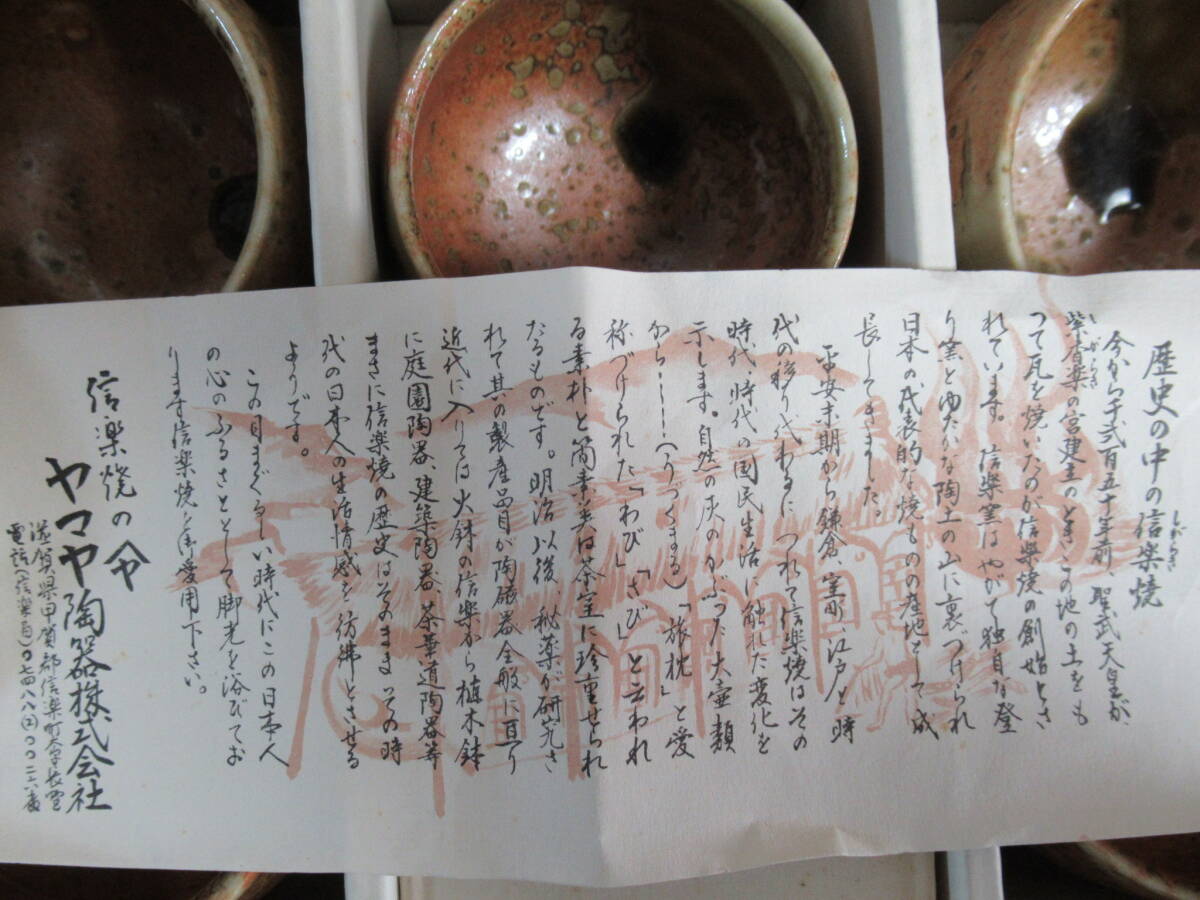 歴史の中の信楽焼
しがらき
今から千弐百五十年前、聖武天皇が、
紫香楽の宮建立のときこの地の土をも
しがらき
って瓦を焼いたのが信楽焼の創始とさ
れています。信楽窯はやがて独自な登
り窯とゆたかな陶土の山に裏づけられ
日本の代表的な焼ものの産地として成
長してきました。
平安末期から鎌倉、室町、江戸と時
代の移り代わるに つれて信楽焼はその
時代、時代の国民生活に触れた変化を
示します。自然の灰のかぶった大壷類
から――(うづくまる)「旅枕」と愛
称づけられた「わび」「さび」と云われ
る素朴と簡素な美は茶室に珍重せられ
たるものです。明治以後、秘薬が研究さ
れて其の製産品目が陶磁器全般に亘り
近代に入りては火鉢の信楽から植木鉢
に庭園陶器、建築陶器、茶華道陶器等
まさに信楽焼の歴史はそのまま、その時
代の日本人の生活情感を彷彿とさせる
ようです。
この目まぐるしい時代にこの日本人
の心のふるさととして脚光を浴びてお
ります信楽焼を御愛用下さい。
信楽焼の
ヤマヤ陶器株式会社
滋賀県甲賀郡信楽町大字長野
電話(信楽局)〇七四八八(二)〇〇二六番